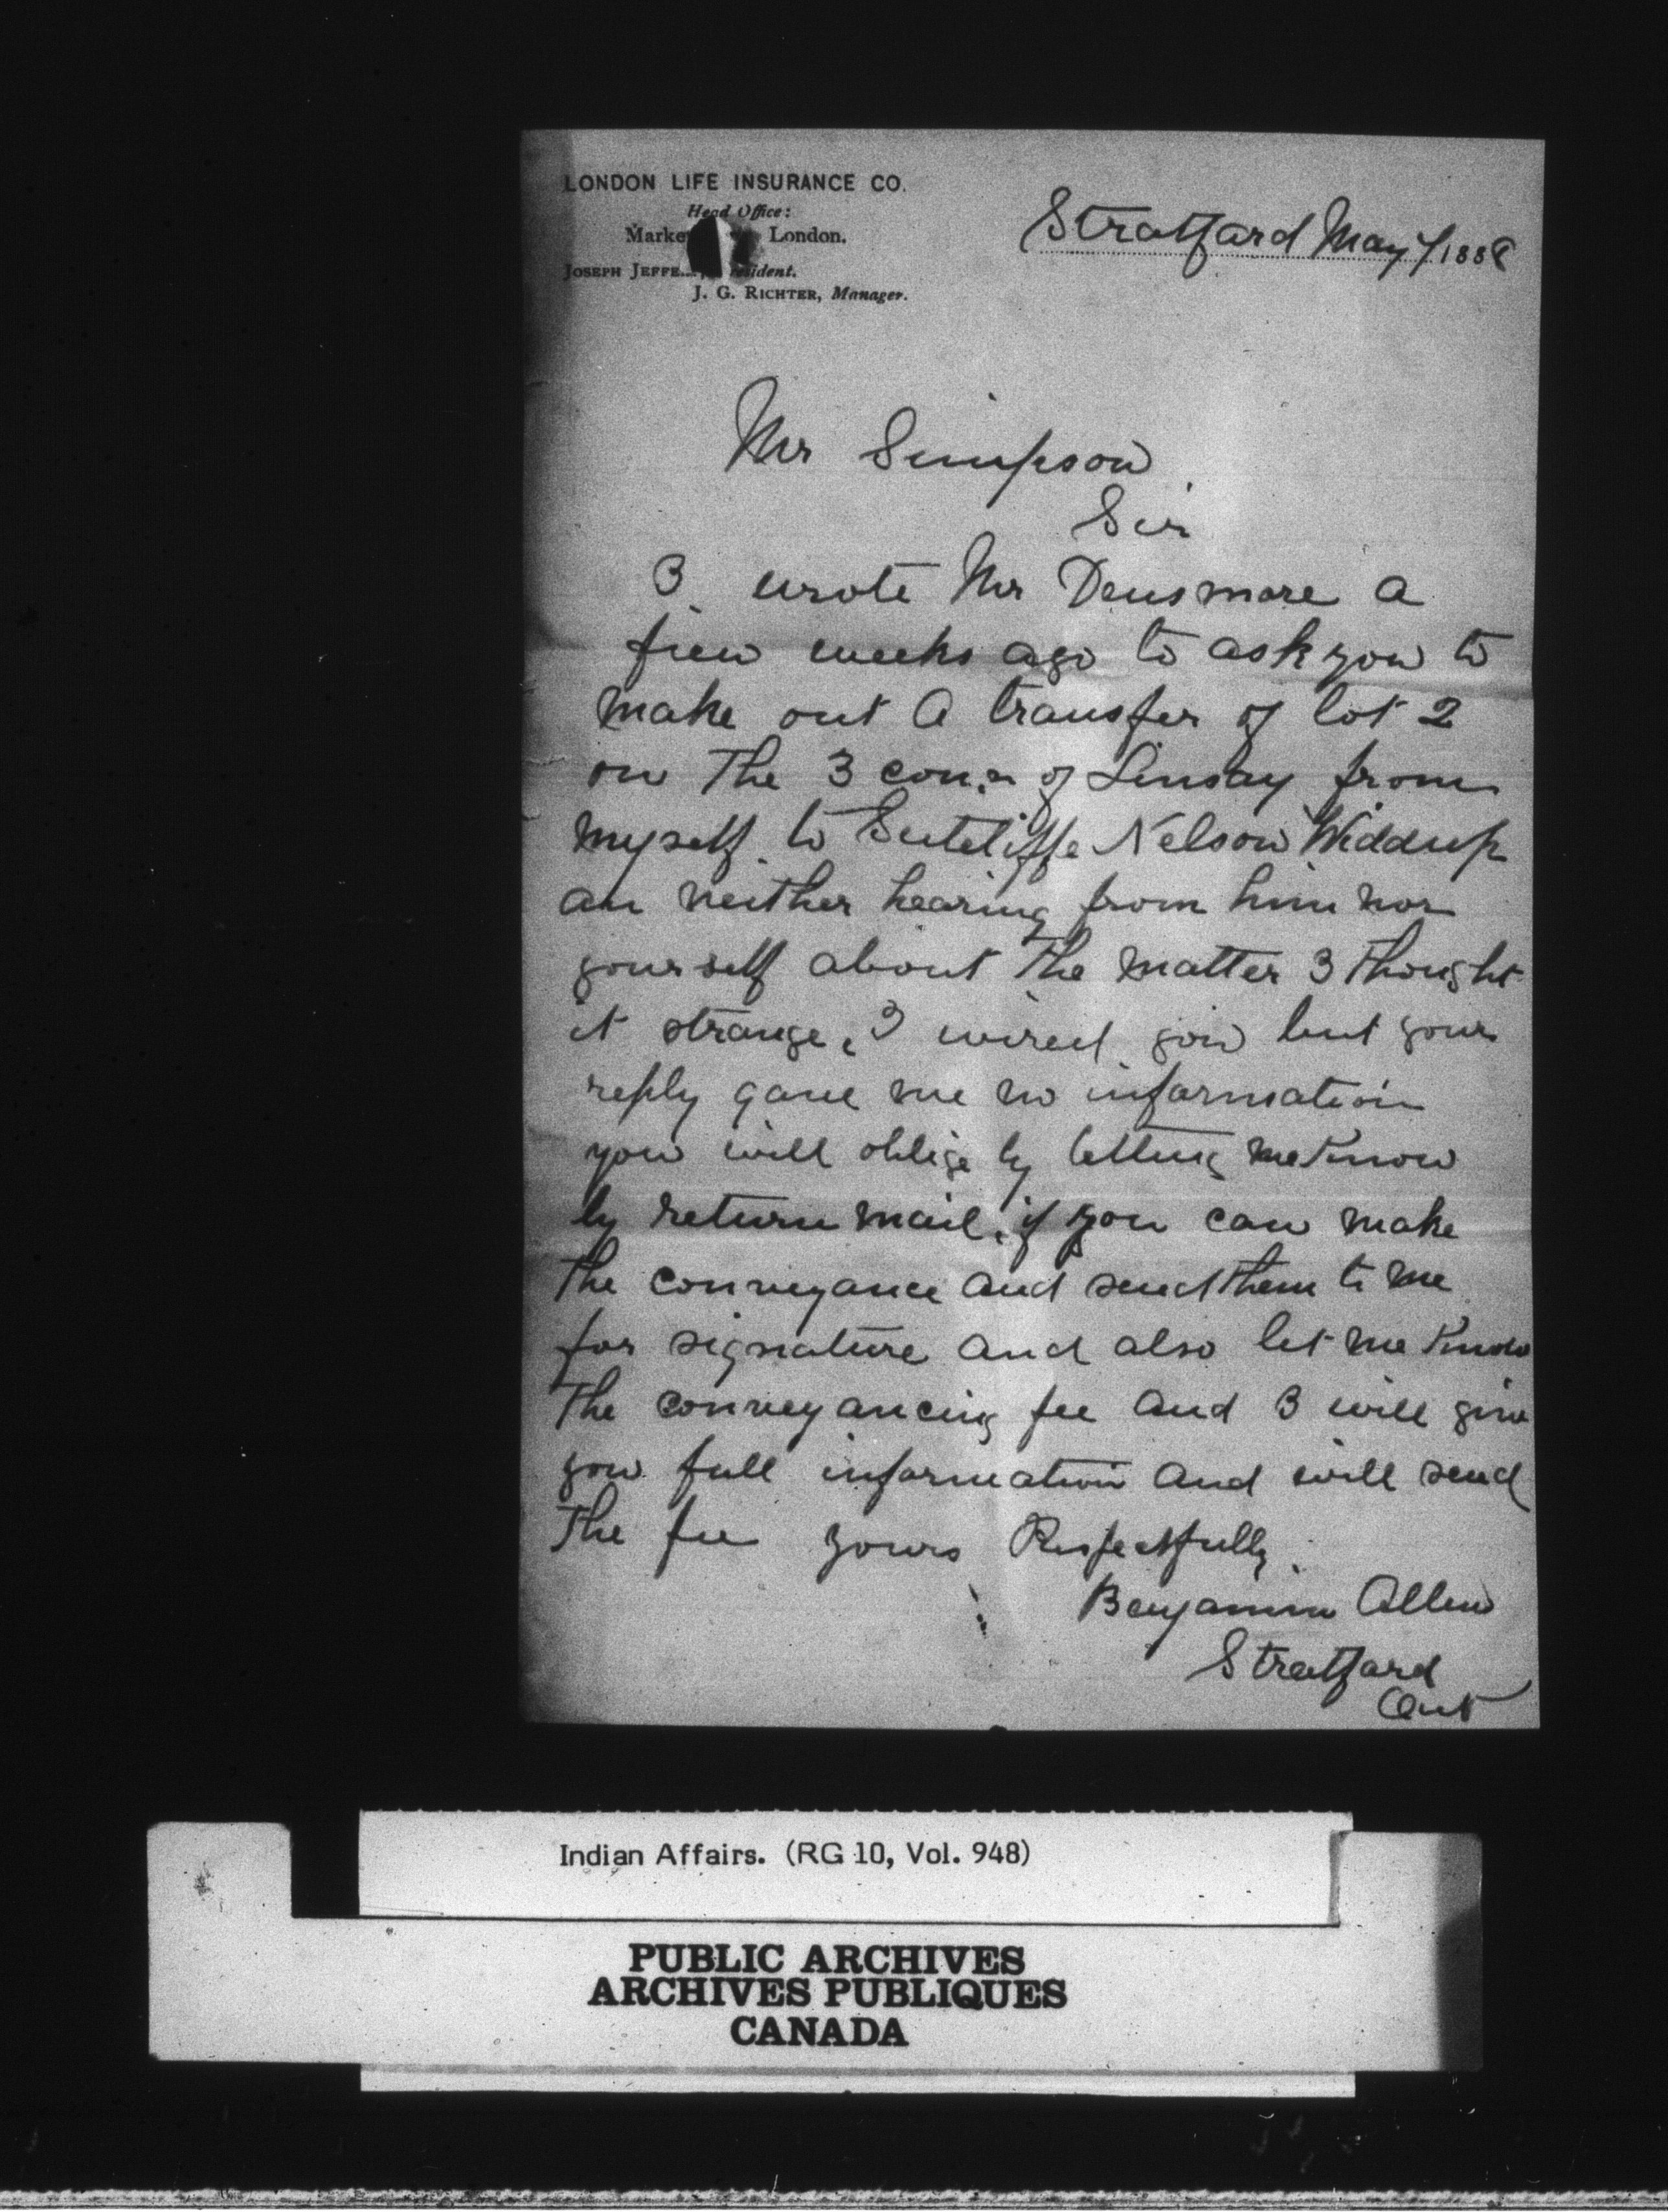 LONDON LIFE INSURANCE CO.
Head Office:
Marke London.
JOSEPH JEFFE ident.
J. G. RICHTER, Manager.
Stratford May 7/1888
Mr Simpson
Sir
I wrote Mr Densmore a
few weeks ago to ask you to
make out a transfer of lot 2
on The 3 con.n of Linsay from
myself to Sutcliffe Nelson Widdup
an neither hearing from him nor
yourself about The matter I thought
it strange, I wired you but your
reply gave me no information
you will oblige by letting me know
by return mail, if you can make
The conveyance and send them to me
for signature and also let me know
The conveyancing fee and I will give
you full information and will send
The fee yours Respectfully
Benjamin Allen
Stratford
Ont
Indian Affairs. (RG 10, Vol. 948)
PUBLIC ARCHIVES
ARCHIVES PUBLIQUES
CANADA